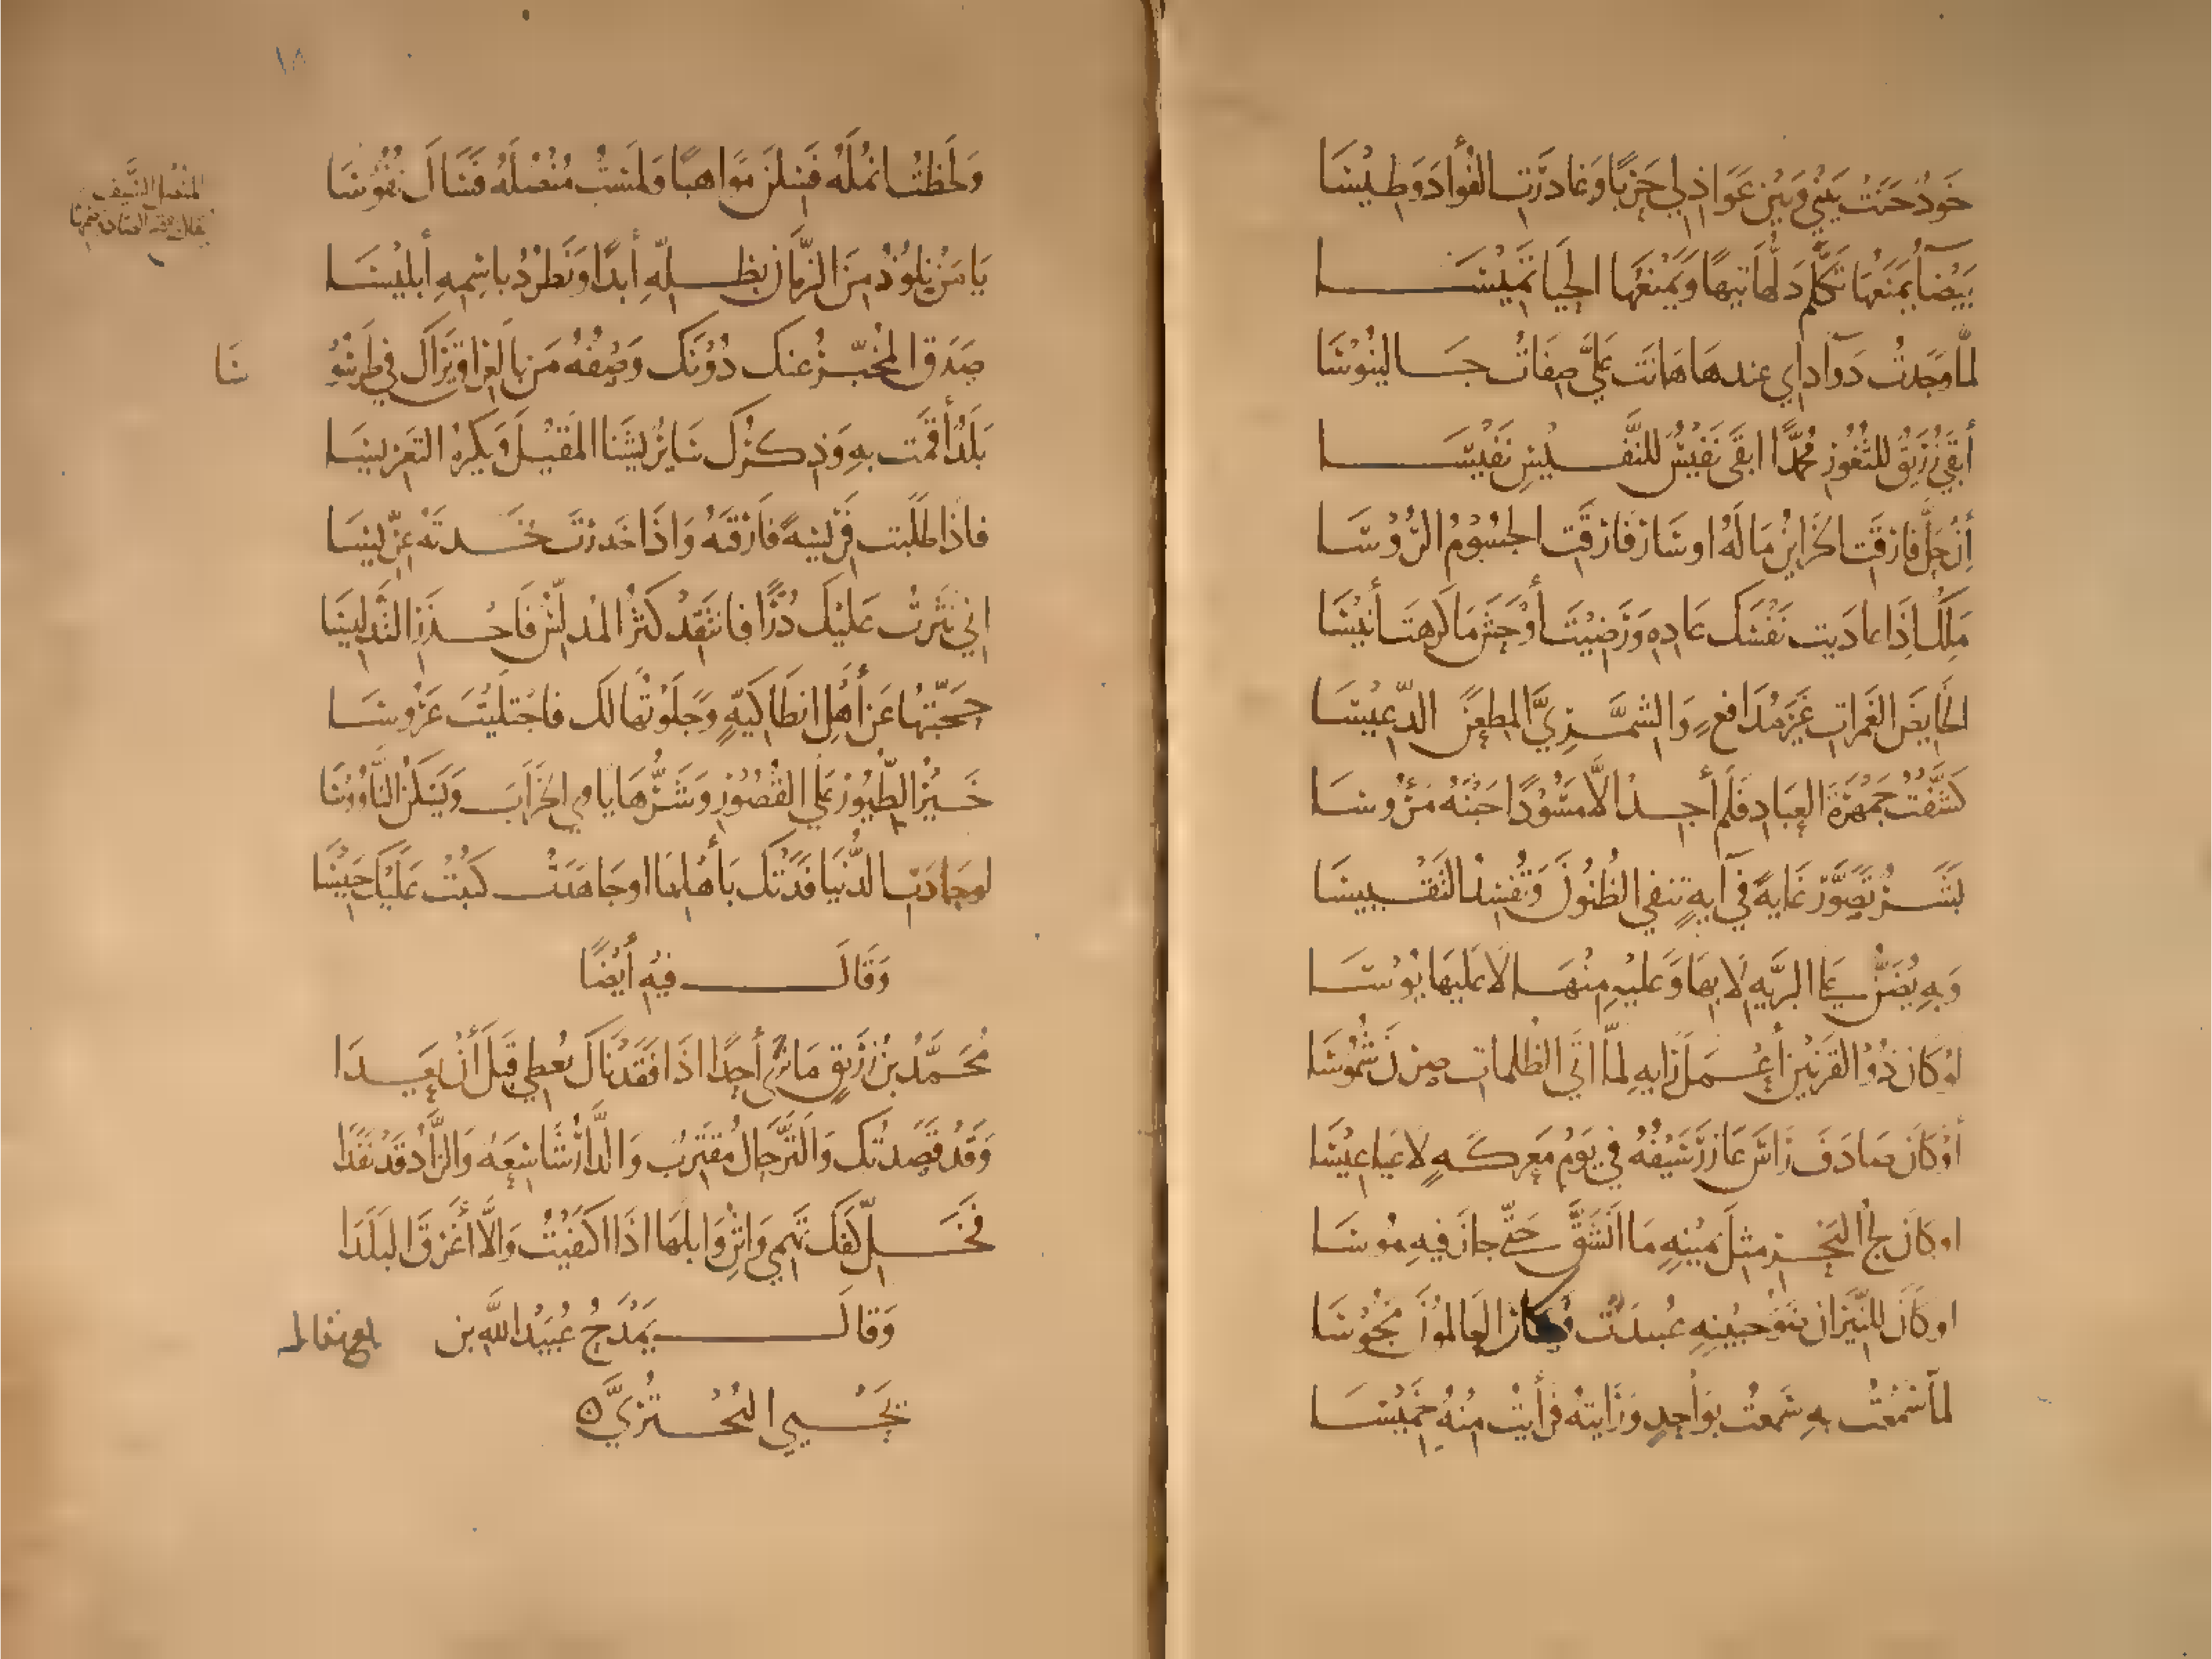 خَودٌ جَنَتْ بَيْنِي وَبَيْنَ عَوَاذِلي حَرْبًا وَغادَرَتِ الفُؤَادَ وَطِيسَا
بَيْضَآءُ يَمْنَعُهَا تَكَلَّمَ دَلُّهَا تِيهًا وَيَمْنَعُهَا الحَيَا تَمِيْسَا
لمَّا وَجَدتُ دَوَآءَ دَاي عِندهَا هَانَت عَلَيَّ صِفَاتُ جَالِينُوسَا
أَبقَى زُرَيْقٌ للثُّغُورِ مُحَمَّدًا ابقَى نَفِيْسٌ للنَّفِيْسِ نَفِيْسَا
اِنْ حَلَّ فارَقَت الخَزايِنُ مَالَهُ اوسَارَ فَارَقَتِ الجُسُوْمُ الرُّؤُوْسَا
مَلِكٌ اِذَا عادَيتَ نَفْسَكَ عَادِهِ وَرَضِيْتَ أَوْحَشَ مَا كَرِهتَ أَنِيْسَا
الخَايِضَ الغَمَراتِ غَيْرَ مُدَافَعٍ وَالشَّمَّرِيَّ المِطعَنَ الدِّعِيْسَا
كَشَّفْتُ جَمْهَرَةَ العِبَادِ فَلَم أَجِدْ الَّا مَسُوْدًا جَنْبَهُ مَرْؤُوسَا
بَشَرٌ تَصَوَّرَ غَايةً في آيَةٍ تنفي الظُّنُوْنَ وَتُفْسِدُ التَقْيِيسَا
وَبِهِ يُضَنُّ عَلَى البَرِيَّةِ لَا بِهَا وَعَليْهِ مِنْهَا لا عَلَيهَا يُوسَا
لَوْ كَانَ ذُو القَرْنَيْنِ أَعْمَلَ رَايهُ لمَّا اتَى الظُلماتِ صِرْنَ شُمُوْسَا
أَوْ كَانَ صَادَفَ رَاسَ عَازَرَ سَيْفُهُ في يَوْمِ مَعرَكَةٍ لاعيَا عِيْسَا
اوكَانَ لُجُّ البَحْرِ مِثلَ يَمِيْنِهِ مَا انْشَقَّ حَتَّى جازَ فيهِ مُوسَا
اوكَانَ للنِّيْرَانِ ضَوْءُ جَبِيْنِهِ عُبِدَتْ فكانَ العالمُوْنَ مجُوْسَا
لمَّا سَمِعْتُ بهِ سَمِعتُ بِوَاحِدٍ وَرَايتُهُ فَرَأَيْتُ مِنْهُ خَمِيْسَا
١٨
وَلَحَظتُ انمُلَهُ فَسِلْنَ مَوَاهبًا وَلمَسْتُ مُنْصُلَهُ فَسَالَ نُفُوْسَا
المنصل السيف
يَا مَنْ نَلُوْذُ مِنَ الزَّمَانِ بِظِلِّهِ أَبدًا وَنَطرُدُ باسْمِهِ أبلِيْسَا
صَدَقَ المُخَبِّرُ عنكَ دُوْنَكَ وَصْفُهُ مَن بالعِرَاقِ يَرَاكَ في طَرَسُوْ
سَا
بَلَدٌ أَقَمْتَ بِهِ وَذِكْرُكَ سَايرٌ يَشْنَا المَقِيْلَ وَيَكرَهُ التَعْرِيسَا
فاذَا طَلَبْتَ فَرِيْسَةً فَارَقتَهُ وَاذَا خَدرْتَ تَخَذتَهُ عِرِّيسَا
اني نَثَرتُ عَلَيْكَ دُرًّا فانتَقِدْ كَثُرَ المُدَلِّسُ فَاحْذَرِ التَّدلِيسَا
حَجَّبْتُهَا عَن أَهْلِ انطَاكِيَةٍ وَجَلَوْتُهَا لَكَ فاجْتَلَيْتَ عَرُوسَا
خَيْرُ الطُّيُوْرِ عَلَى القُصُوْرِ وَشَرُّهَا ياوي الخَرَابَ وَيَسْكُنُ النَّاوُوْسَا
لوجَادَتِ الدُّنيَا فَدَتْكَ بأَهْلِهَا اوجَاهَدَتْ كُتِبَتْ عَلَيْكَ حَبِيْسَا
وَقَالَ فِيْهِ أَيْضًا
مُحَمَّدُ بنُ زُرَيْقٍ مَا نَرَى أَحَدًا اذَا فَقَدنَاكَ يُعطي قَبْلَ أَنْ يَعِدَا
وَقَدْ قَصَدتُكَ وَالتَّرحَالُ مُقْتَرِبٌ وَالدَّارُ شَاسِعَةٌ وَالزَّادُ قَدْ نَفَدَا
فَخَلِّ كَفَّكَ تَهْمِي وَاثْنِ وَابلَهَا اذَا اكتَفَيْتُ وَالَّا أَغْرَقَ البَلَدَا
وَقَالَ يَمْدَحُ عُبَيْدَ اللهِ بنَ
يَحْيى البُحْتُرِيَّ